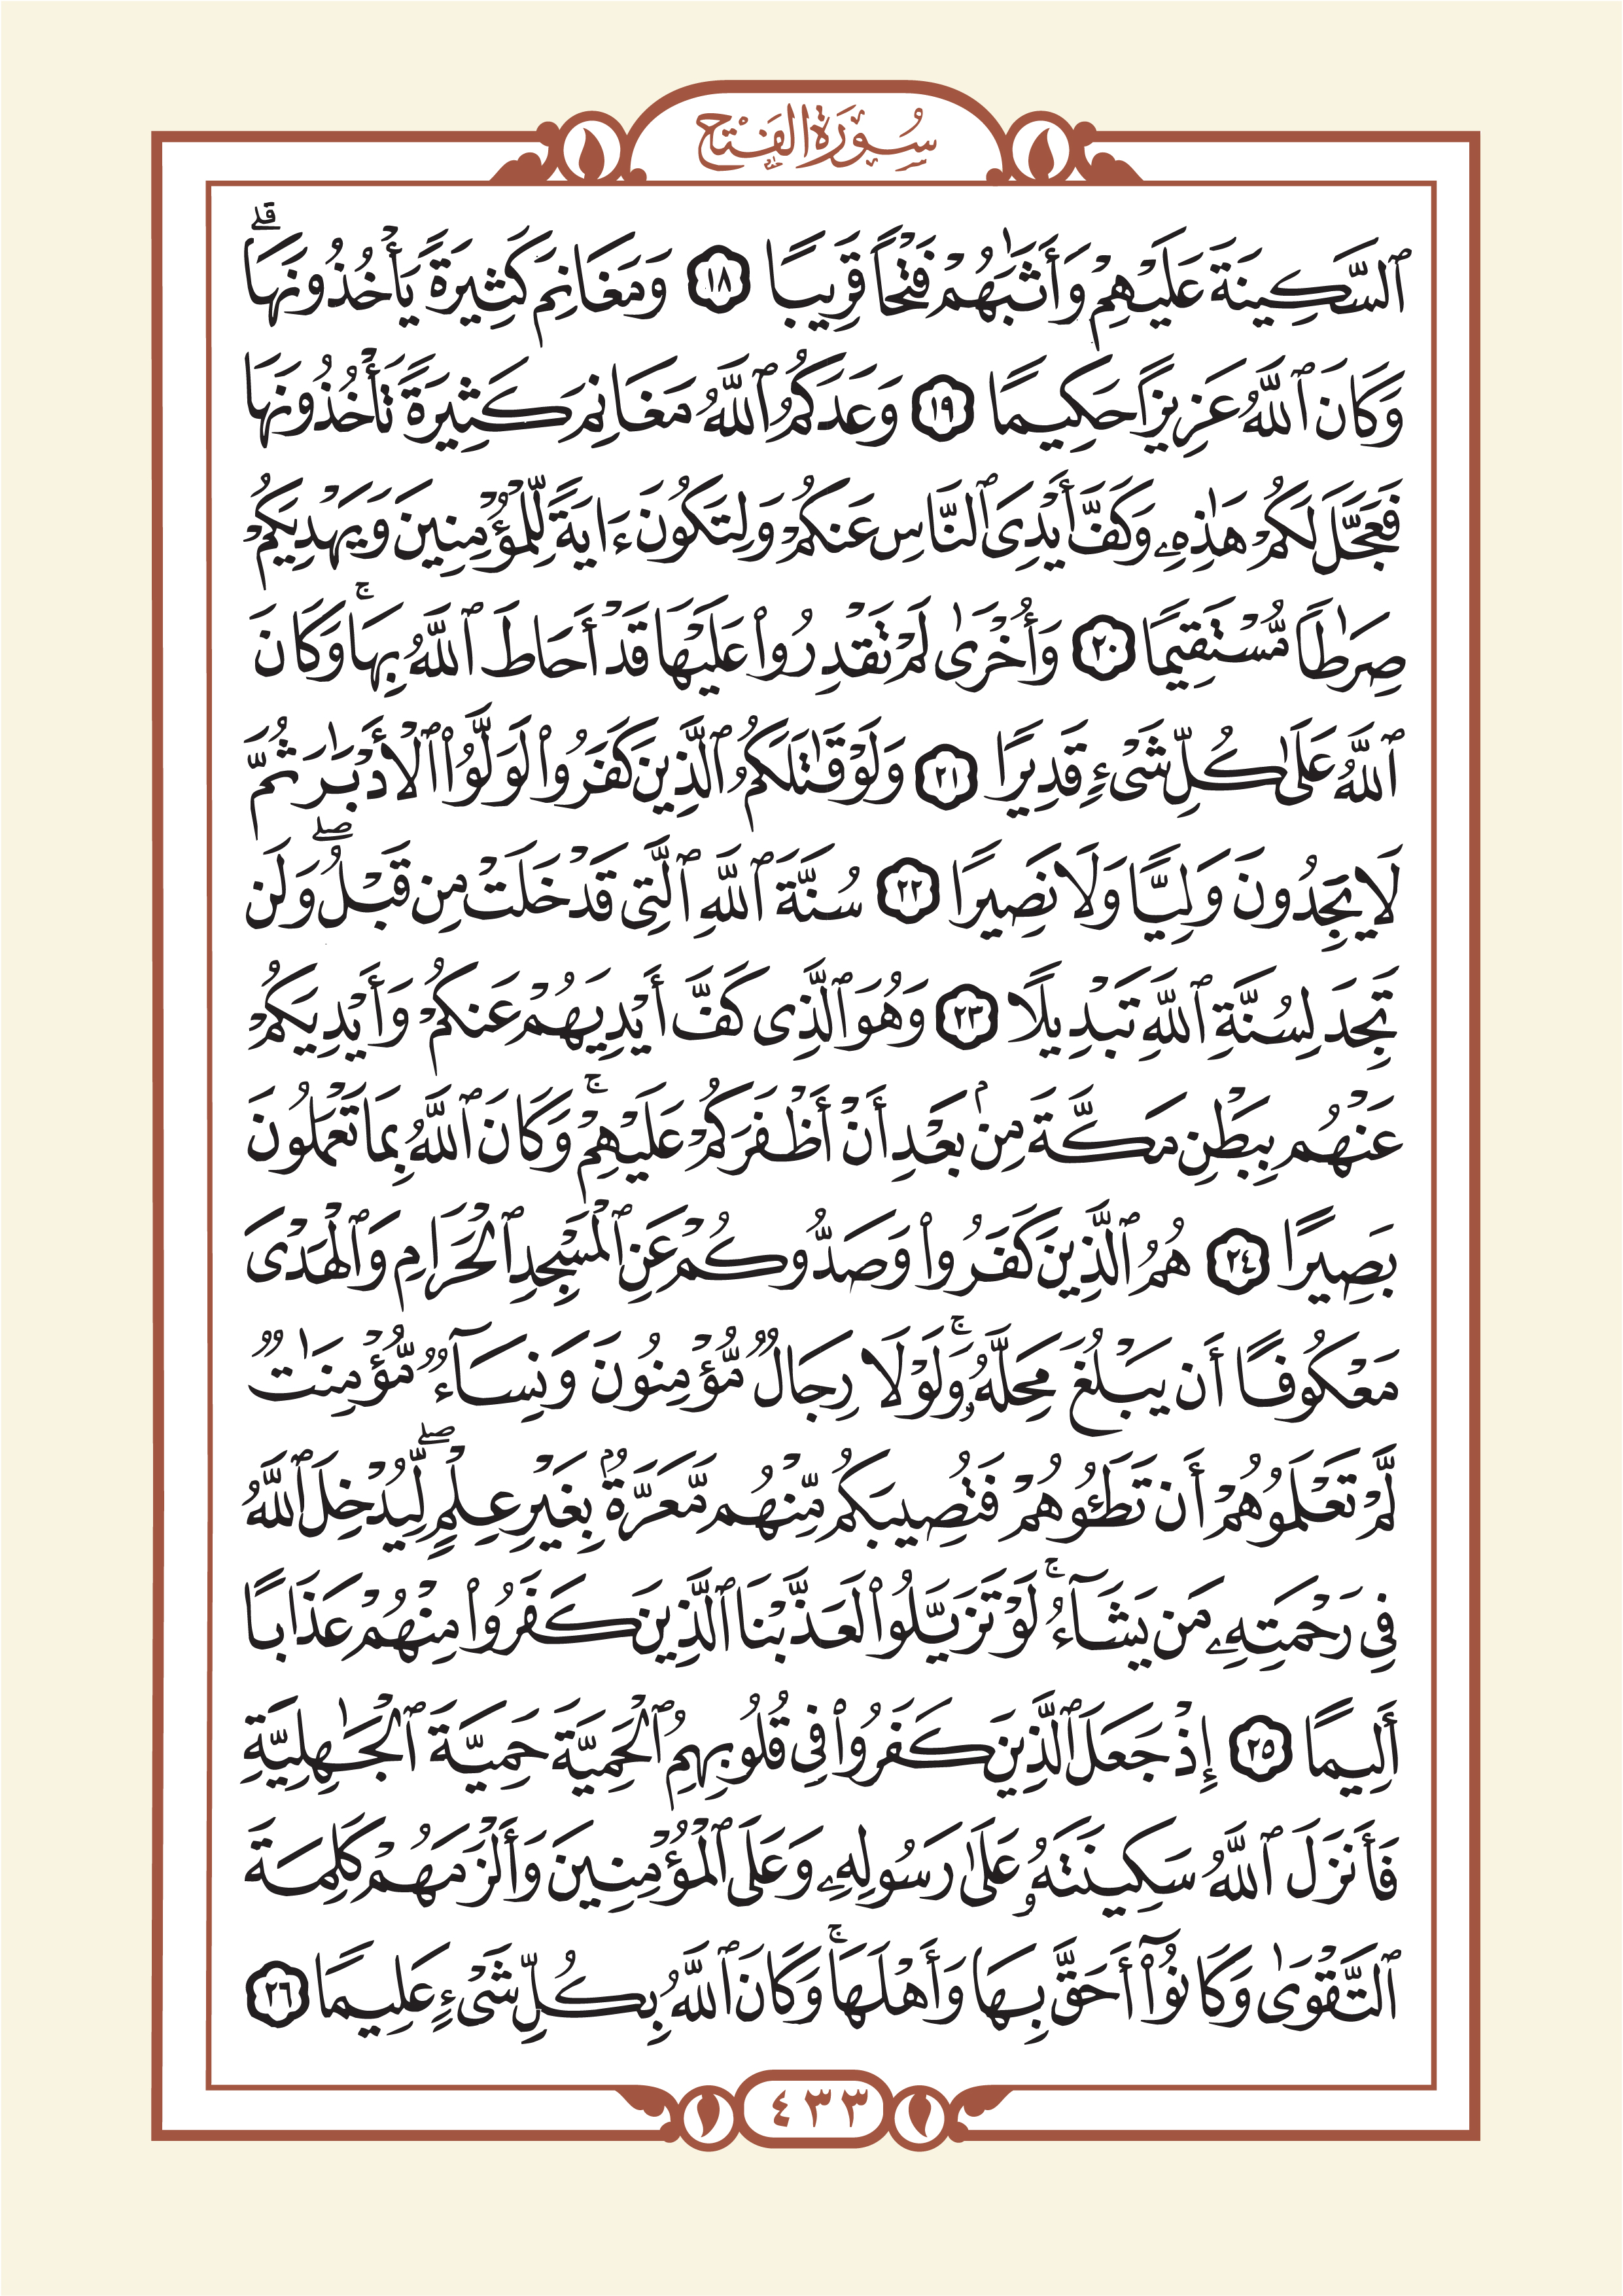 سُورَةُ الفَتْحِ
ٱلسَّكِينَةَ عَلَيْهِمْ وَأَثَٰبَهُمْ فَتْحًا قَرِيبًا ١٨ وَمَغَانِمَ كَثِيرَةً يَأْخُذُونَهَاۗ
وَكَانَ ٱللَّهُ عَزِيزًا حَكِيمًا ١٩ وَعَدَكُمُ ٱللَّهُ مَغَانِمَ كَثِيرَةً تَأْخُذُونَهَا
فَعَجَّلَ لَكُمْ هَٰذِهِۦ وَكَفَّ أَيْدِىَ ٱلنَّاسِ عَنكُمْ وَلِتَكُونَ ءَايَةً لِّلْمُؤْمِنِينَ وَيَهْدِيَكُمْ
صِرَٰطًا مُّسْتَقِيمًا ٢٠ وَأُخْرَىٰ لَمْ تَقْدِرُوا۟ عَلَيْهَا قَدْ أَحَاطَ ٱللَّهُ بِهَاۚ وَكَانَ
ٱللَّهُ عَلَىٰ كُلِّ شَىْءٍ قَدِيرًا ٢١ وَلَوْ قَٰتَلَكُمُ ٱلَّذِينَ كَفَرُوا۟ لَوَلَّوُا۟ ٱلْأَدْبَٰرَ ثُمَّ
لَا يَجِدُونَ وَلِيًّا وَلَا نَصِيرًا ٢٢ سُنَّةَ ٱللَّهِ ٱلَّتِى قَدْ خَلَتْ مِن قَبْلُۖ وَلَن
تَجِدَ لِسُنَّةِ ٱللَّهِ تَبْدِيلًا ٢٣ وَهُوَ ٱلَّذِى كَفَّ أَيْدِيَهُمْ عَنكُمْ وَأَيْدِيَكُمْ
عَنْهُم بِبَطْنِ مَكَّةَ مِنۢ بَعْدِ أَنْ أَظْفَرَكُمْ عَلَيْهِمْۚ وَكَانَ ٱللَّهُ بِمَا تَعْمَلُونَ
بَصِيرًا ٢٤ هُمُ ٱلَّذِينَ كَفَرُوا۟ وَصَدُّوكُمْ عَنِ ٱلْمَسْجِدِ ٱلْحَرَامِ وَٱلْهَدْىَ
مَعْكُوفًا أَن يَبْلُغَ مَحِلَّهُۥۚ وَلَوْلَا رِجَالٌ مُّؤْمِنُونَ وَنِسَآءٌ مُّؤْمِنَٰتٌ
لَّمْ تَعْلَمُوهُمْ أَن تَطَـُٔوهُمْ فَتُصِيبَكُم مِّنْهُم مَّعَرَّةٌۢ بِغَيْرِ عِلْمٍۖ لِّيُدْخِلَ ٱللَّهُ
فِى رَحْمَتِهِۦ مَن يَشَآءُۚ لَوْ تَزَيَّلُوا۟ لَعَذَّبْنَا ٱلَّذِينَ كَفَرُوا۟ مِنْهُمْ عَذَابًا
أَلِيمًا ٢٥ إِذْ جَعَلَ ٱلَّذِينَ كَفَرُوا۟ فِى قُلُوبِهِمُ ٱلْحَمِيَّةَ حَمِيَّةَ ٱلْجَٰهِلِيَّةِ
فَأَنزَلَ ٱللَّهُ سَكِينَتَهُۥ عَلَىٰ رَسُولِهِۦ وَعَلَى ٱلْمُؤْمِنِينَ وَأَلْزَمَهُمْ كَلِمَةَ
ٱلتَّقْوَىٰ وَكَانُوٓا۟ أَحَقَّ بِهَا وَأَهْلَهَاۚ وَكَانَ ٱللَّهُ بِكُلِّ شَىْءٍ عَلِيمًا ٢٦
٤٣٣